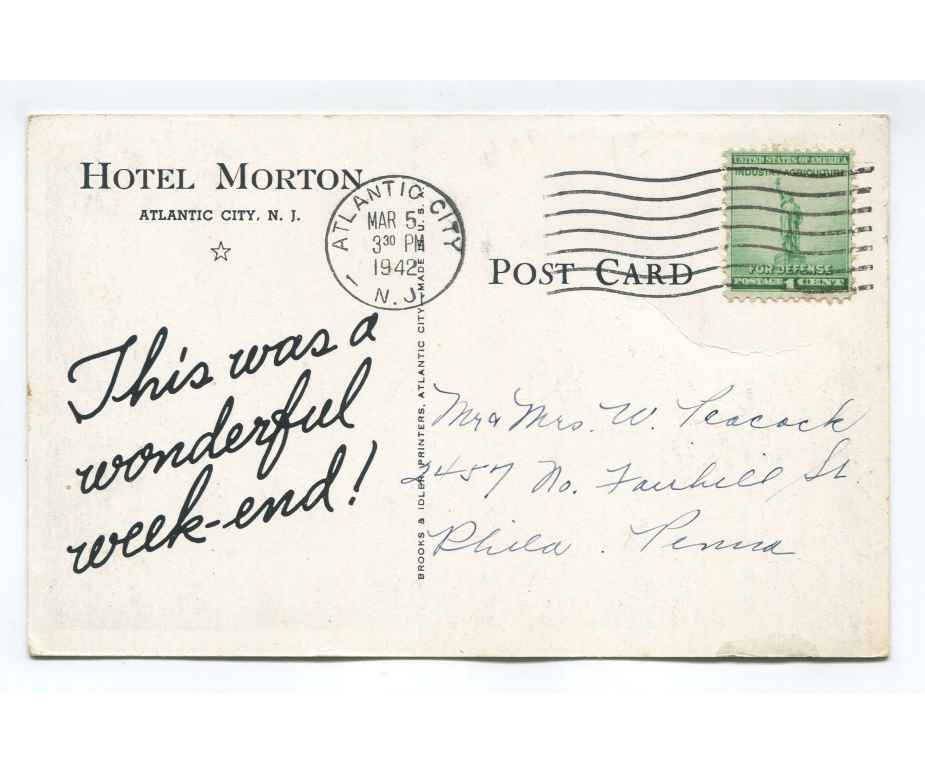 HOTEL MORTON
ATLANTIC CITY, N. J.
ATLANTIC CITY
MAR 5
3 30 PM
1942
N. J.
UNITED STATES OF AMERICA
INDUSTRY AGRICULTURE
FOR DEFENSE
POSTAGE 1 CENT
POST CARD
This was a
wonderful
week-end!
BROOKS & IDLER, PRINTERS, ATLANTIC CITY—MADE U. S. A.
Mr & Mrs. W. Peacock
2457 No. Fairhill St.
Phila. Penna